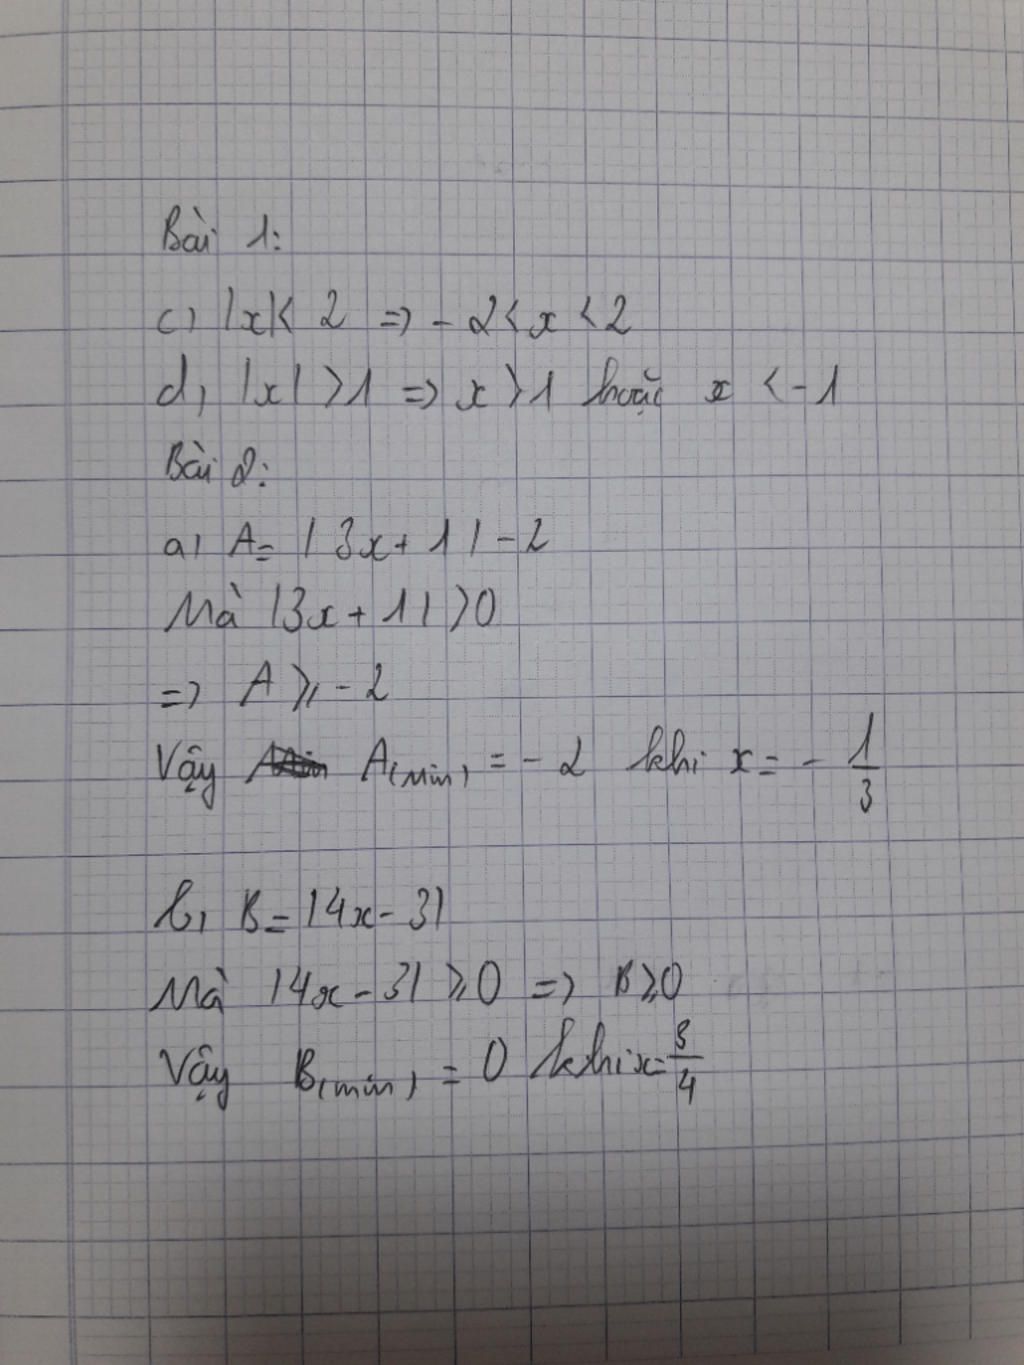 Bài 1:
c) |x| < 2 => - 2 < x < 2
d) |x| > 1 => x > 1 hoặc x < - 1
Bài 2:
a) A = |3x + 1| - 2
Mà |3x + 1| > 0
=> A ≥ - 2
Vậy A(Min) = - 2 khi x = - 1/3
b) B = |4x - 3|
Mà |4x - 3| ≥ 0 => B ≥ 0
Vậy B(min) = 0 khi x = 3/4